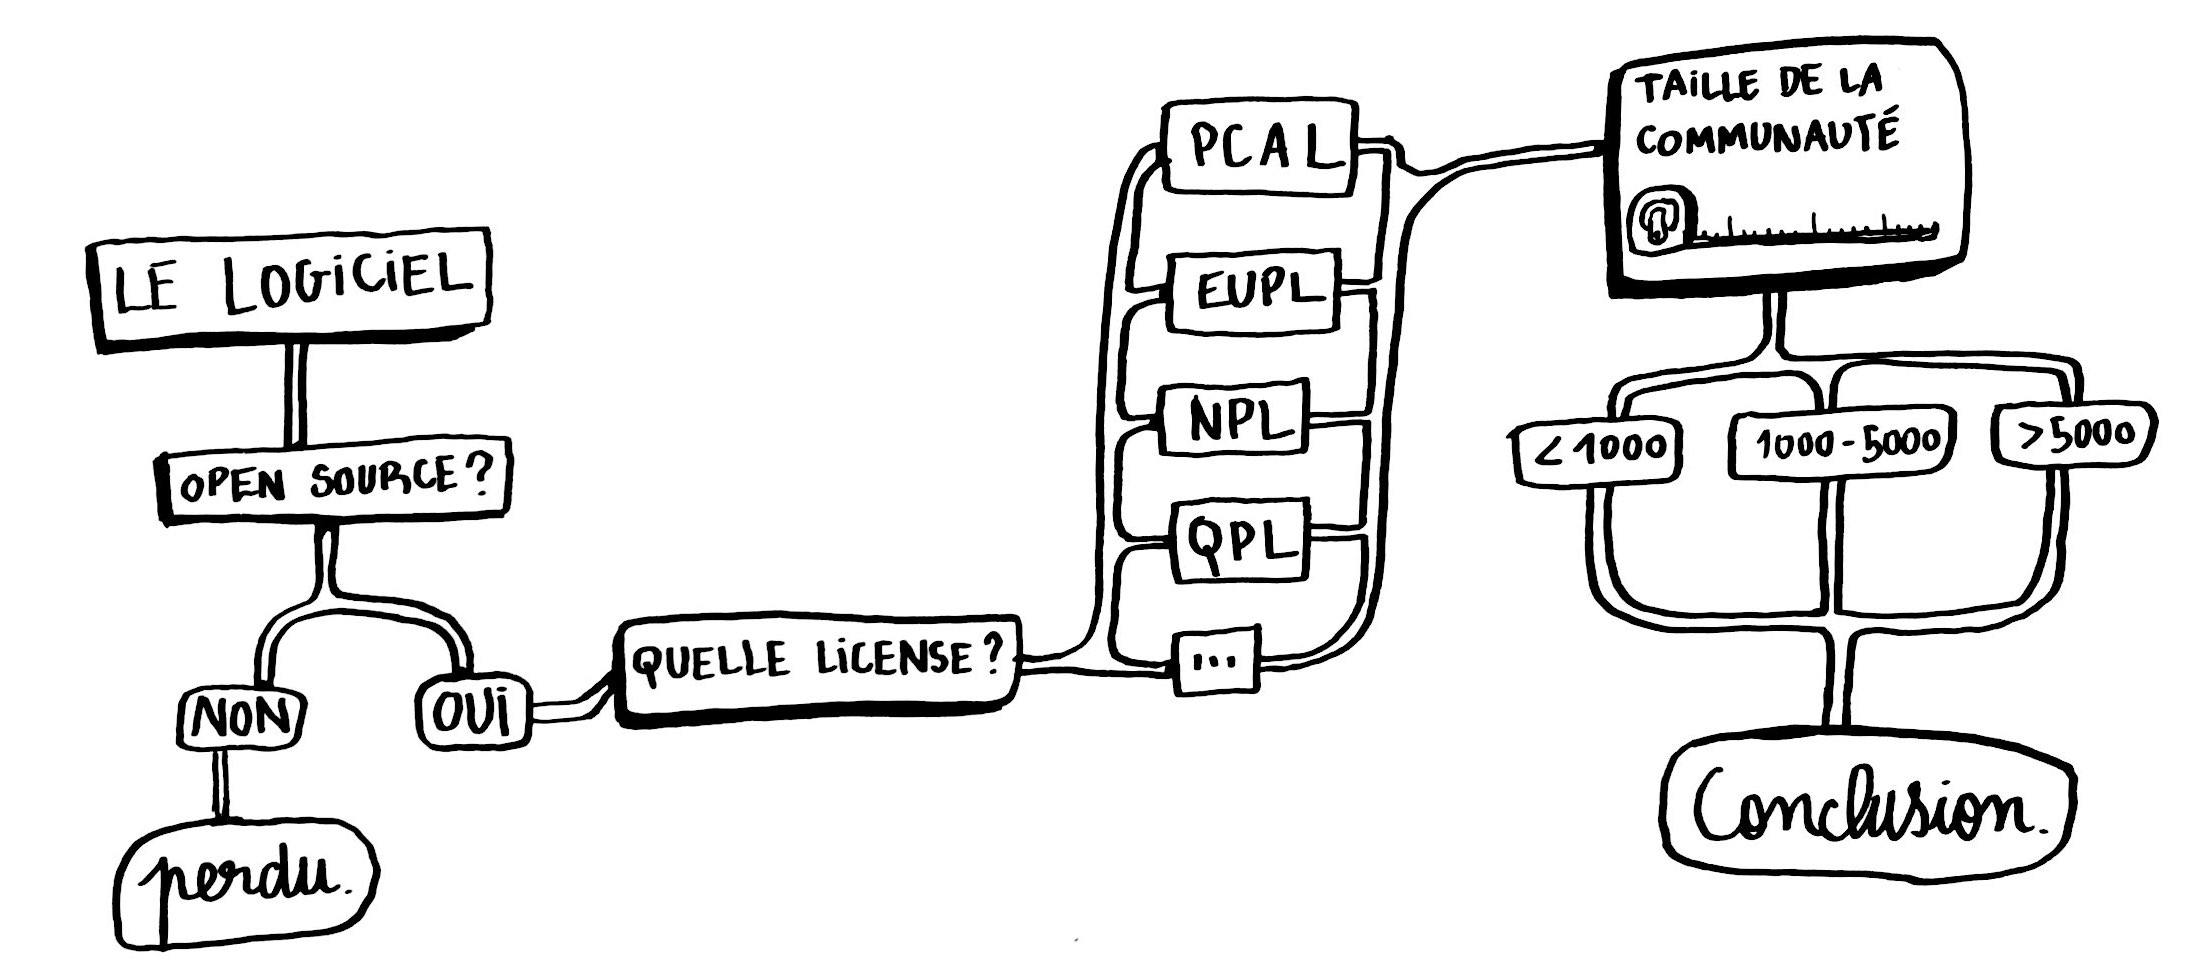 LE LOGiCiEL
OPEN SOURCE?
NON
OUi
perdu.
QUELLE LiCENSE?
PCAL
EUPL
NPL
QPL
...
TAiLLE DE LA
COMMUNAUTÉ
<1000
1000-5000
>5000
Conclusion.